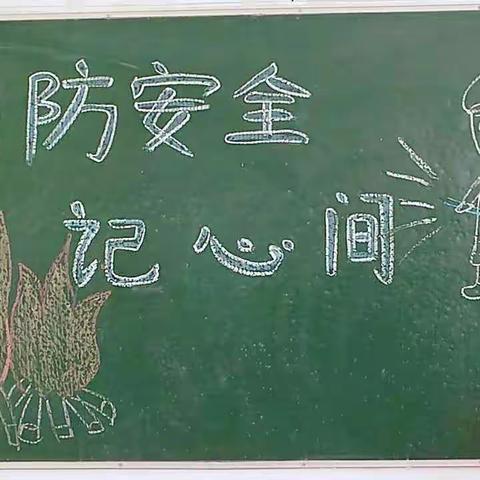 防安全
记心间